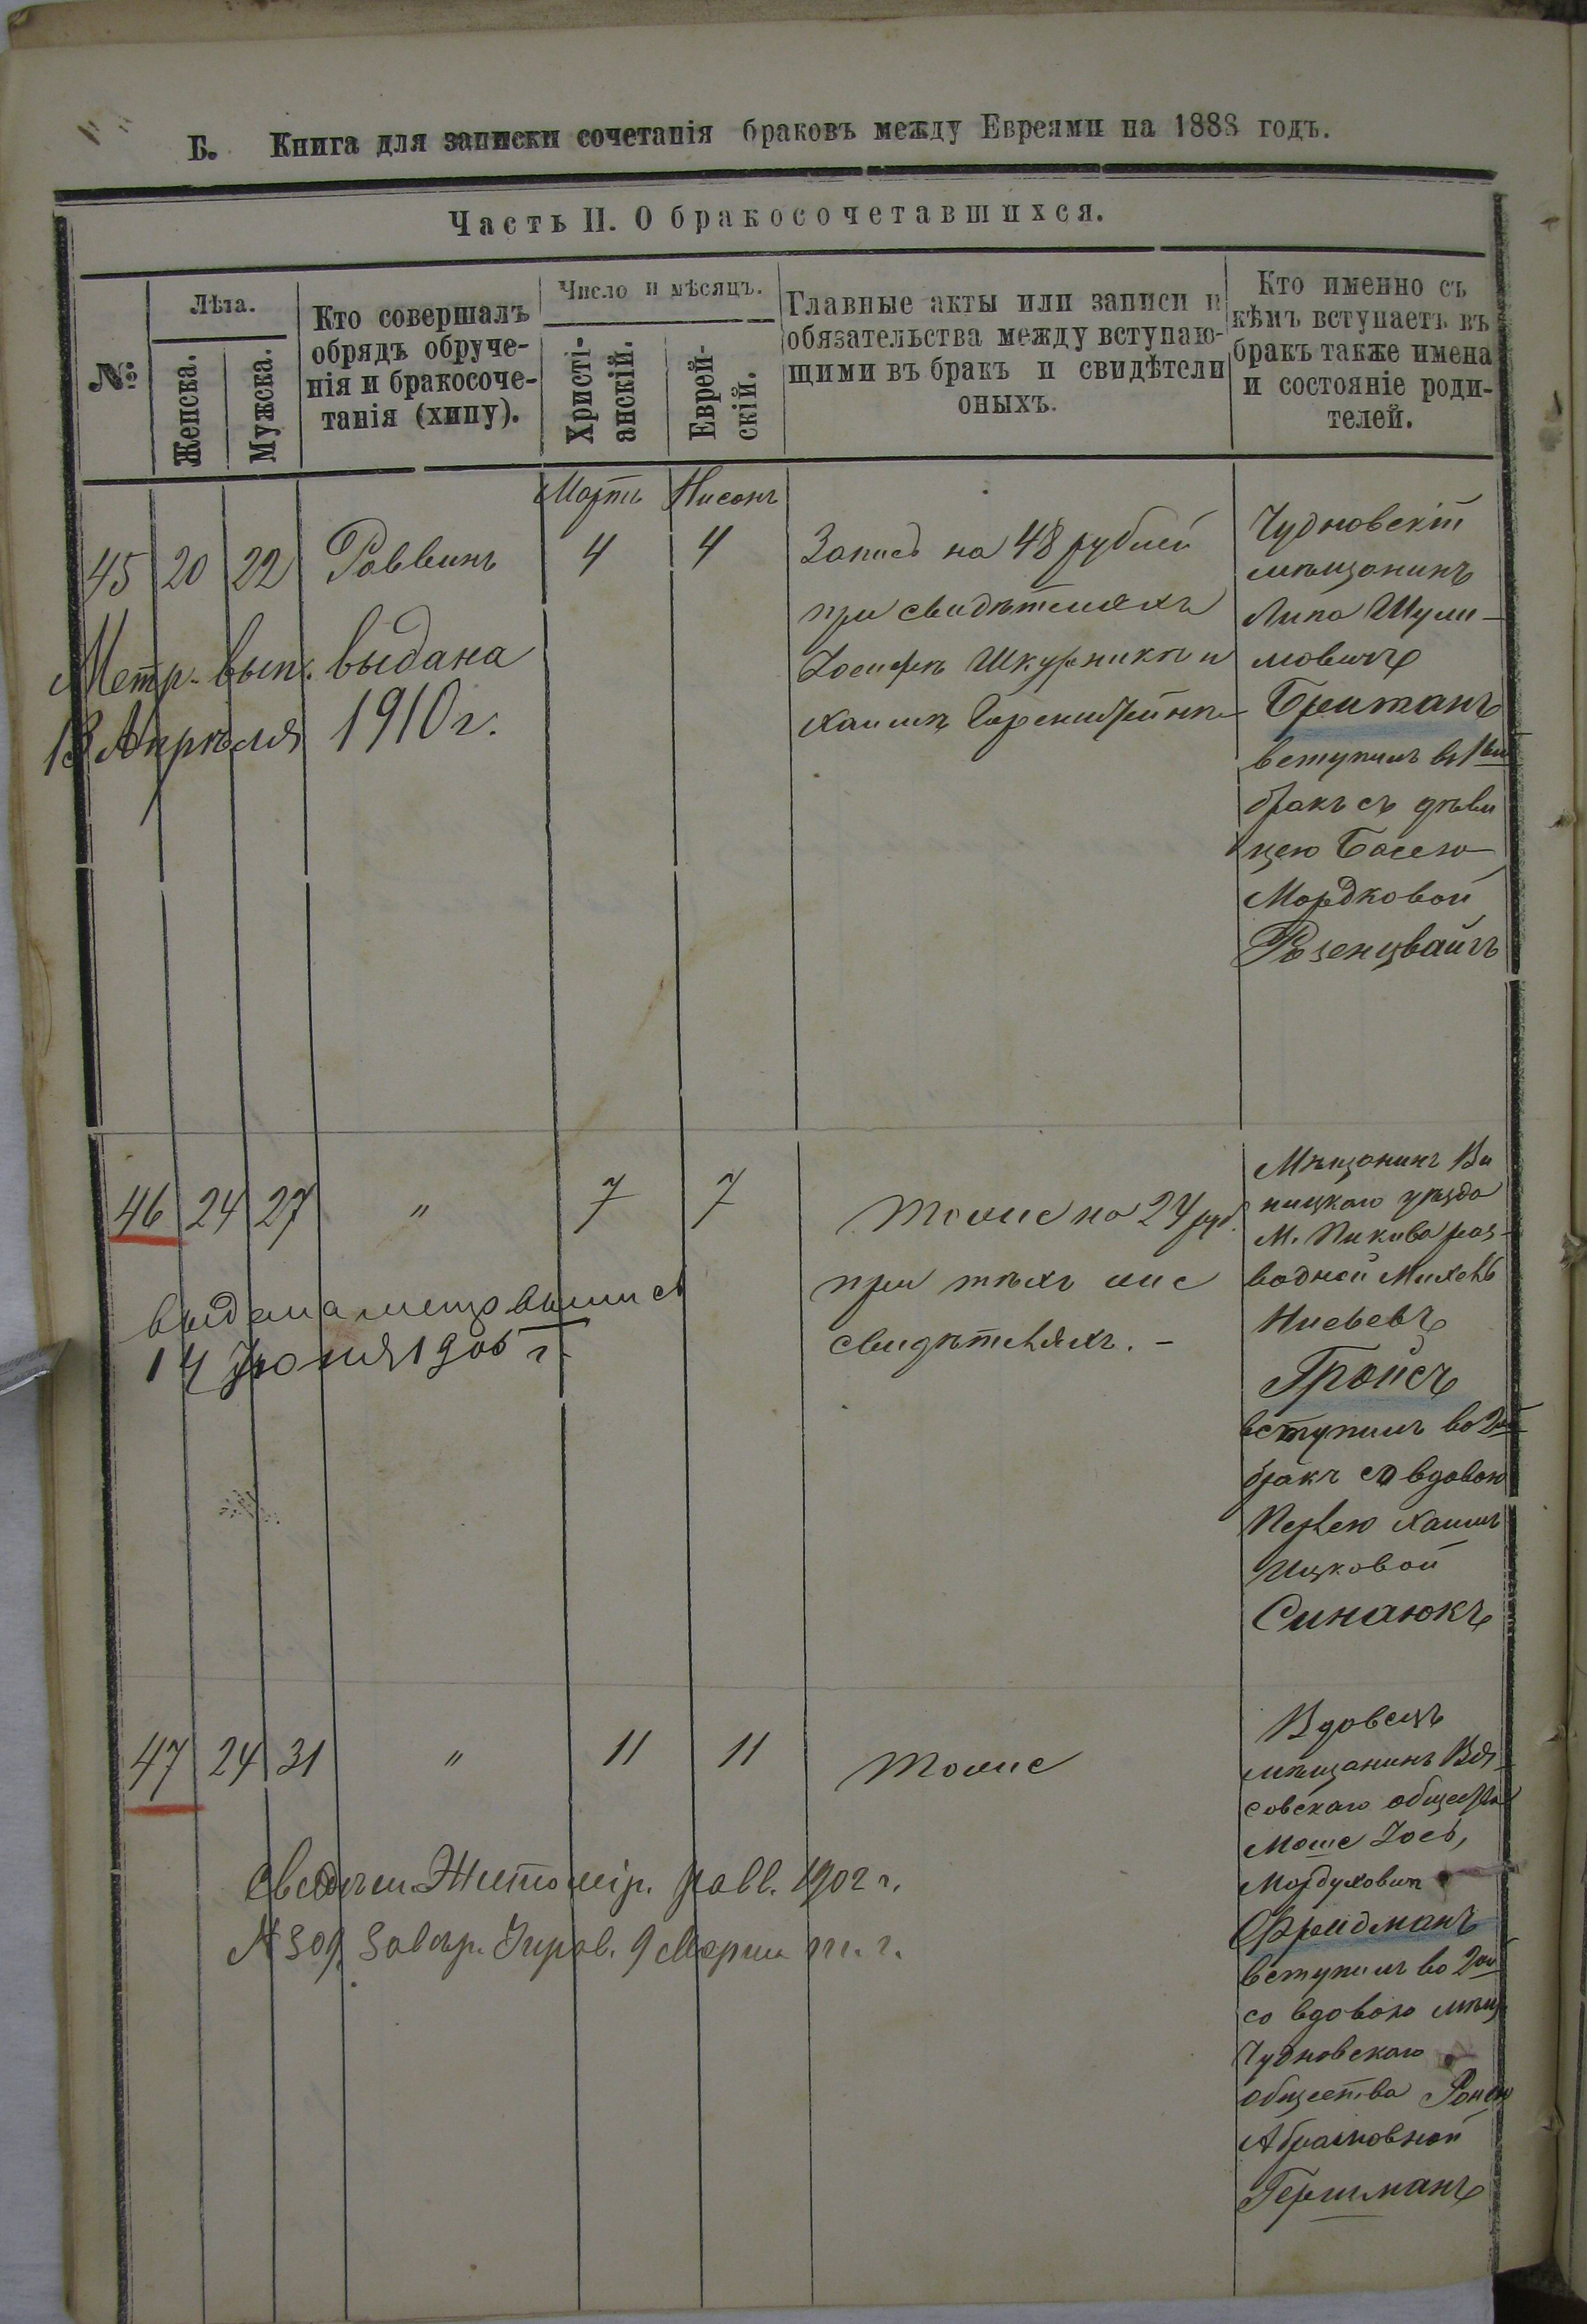 Б. Книга для записки сочетанія браковъ между Евреями на 1888 годъ.
Часть II. О бракосочетавшихся.
№
Лѣта.
Женска.
Мужска.
Кто совершалъ
обрядъ обруче-
нія и бракосоче-
танія (хипу).
Число и мѣсяцъ.
Христі-
анскій.
Еврей-
скій.
Главные акты или записи и
обязательства между вступаю-
щими въ бракъ и свидѣтели
оныхъ.
Кто именно съ
кѣмъ вступаетъ въ
бракъ также имена
и состояніе роди-
телей.
Мартъ Нисонъ
45 20 22 Раввинъ 4 4
Запись на 48 рублей
при свидѣтеляхъ
Іосифѣ Шкурникѣ и
Хаимѣ
Чудновскій
мѣщанинъ
Липа Шули-
мовичъ
Бритманъ
вступилъ въ 1ый
бракъ съ дѣви
цею Басею
Мордковой
Розенцвайгъ
Метр. вып. выдана
13 Апрѣля 1910 г.
46 24 27 " 7 7
Тоже на 24 руб.
при тѣхъ же
свидѣтеляхъ. -
Мѣщанинъ Ви
ницкаго уѣзда
М. Пикова раз-
водной Михель
Гройсъ
вступилъ во 2ой
бракъ со вдовою
Перлею Хаимъ
Ицковой
Синаюкъ
выдана метр выпись
14 Іюня 1906 г.
47 24 31 " 11 11
Тоже
Вдовецъ
мѣщанинъ
общества
Моше Іось,
Мордуховичъ
Фридманъ
вступилъ во 2ой
со вдовою мѣщ.
Чудновскаго
общества
Абрамовной
Гершманъ
Житомір. равв. 1902 г.
№ 309, 9 Марта т. г.